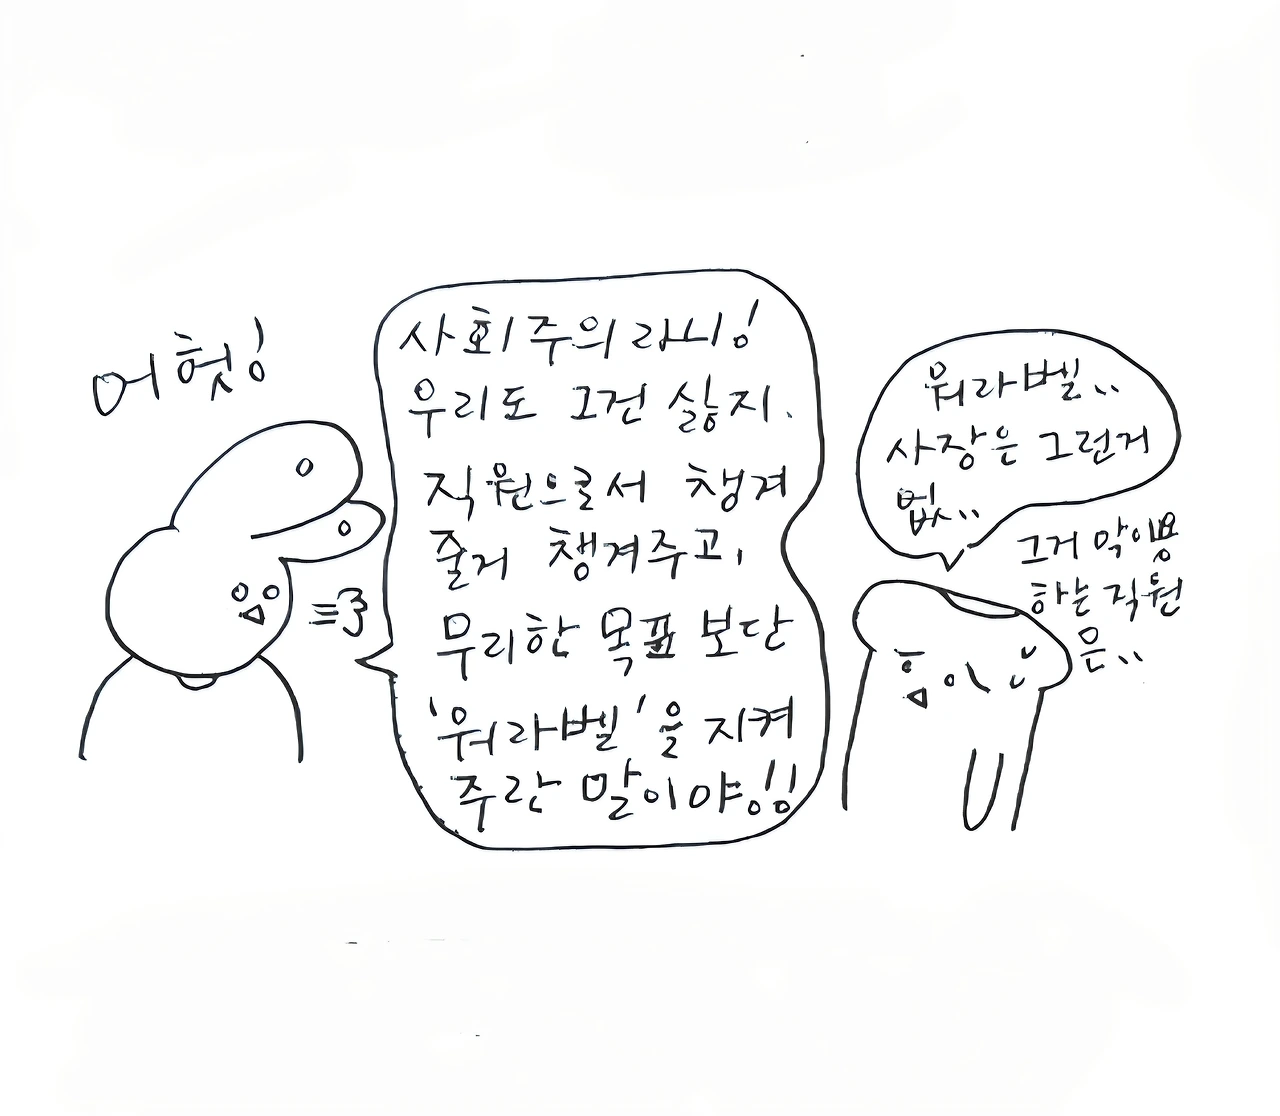 어헛!
사회주의라니!
우리도 그건 싫지.
직원으로서 챙겨
줄거 챙겨주고,
무리한 목표 보단
'워라벨'을 지켜
주란 말이야!!
워라벨..
사장은 그런거
없..
그거 막이용
하는 직원
은..